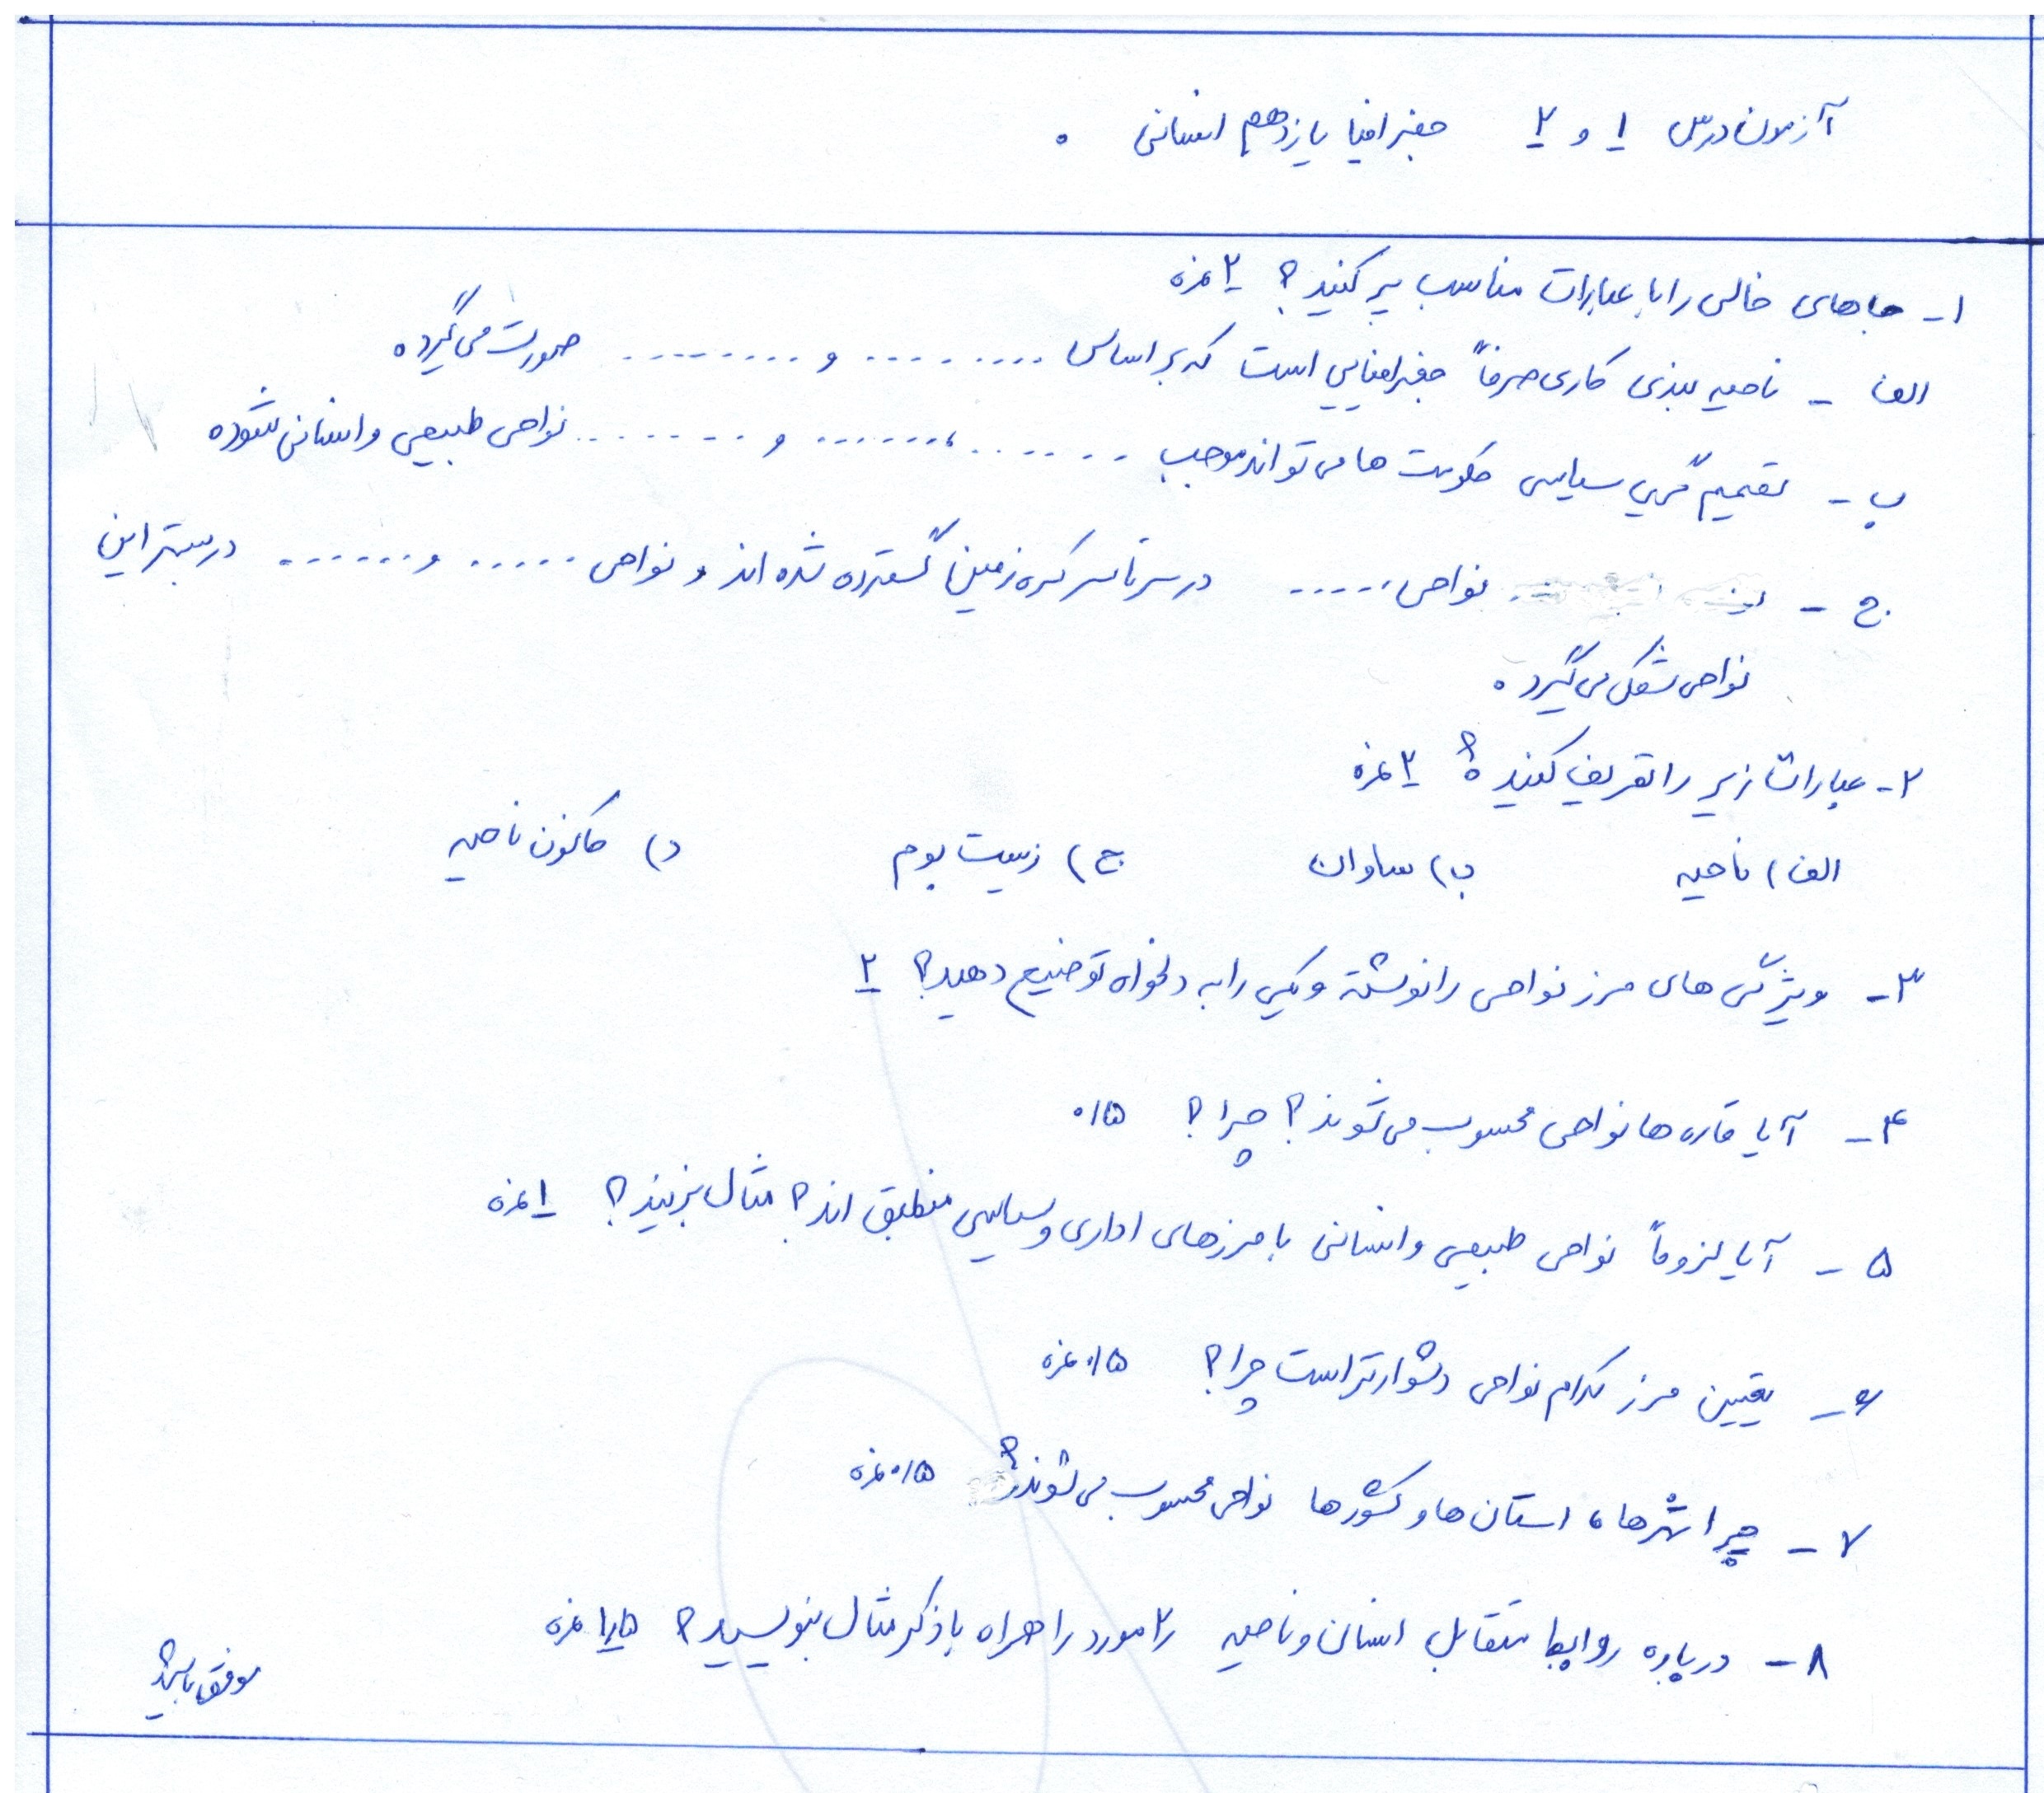 آزمون درس ۱ و ۲ جغرافیا یازدهم انسانی .
۱- جاهای خالی را با عبارات مناسب پر کنید؟ ۲ نمره
الف - ناحیه بندی کاری صرفاً جغرافیایی است که بر اساس ......... و ......... صورت می گیرد.
ب - تصمیم گیری سیاسی حکومت ها می تواند موجب ......، ....... و ........ نواحی طبیعی و انسانی شود.
ج - نواحی ...... در سرتاسر کره زمین گسترده شده اند و نواحی ..... و ...... در بستر این
نواحی شکل می گیرد.
۲- عبارات زیر را تعریف کنید؟ ۲ نمره
الف) ناحیه ب) ساوان ج) زیست بوم د) کانون ناحیه
۳- ویژگی های مرز نواحی را نوشته و یکی را به دلخواه توضیح دهید؟ ۲
۴- آیا قاره ها نواحی محسوب می شوند؟ چرا؟ ۰/۵
۵- آیا لزوماً نواحی طبیعی و انسانی با مرزهای اداری و سیاسی منطبق اند؟ مثال بزنید؟ ۱ نمره
۶- تعیین مرز کدام نواحی دشوارتر است چرا؟ ۰/۵ نمره
۷- چرا شهرها، استان ها و کشورها نواحی محسوب می شوند؟ ۰/۵ نمره
۸- درباره روابط متقابل انسان و ناحیه ۲ مورد را همراه با ذکر مثال بنویسید؟ ۱/۵ نمره
موفق باشید